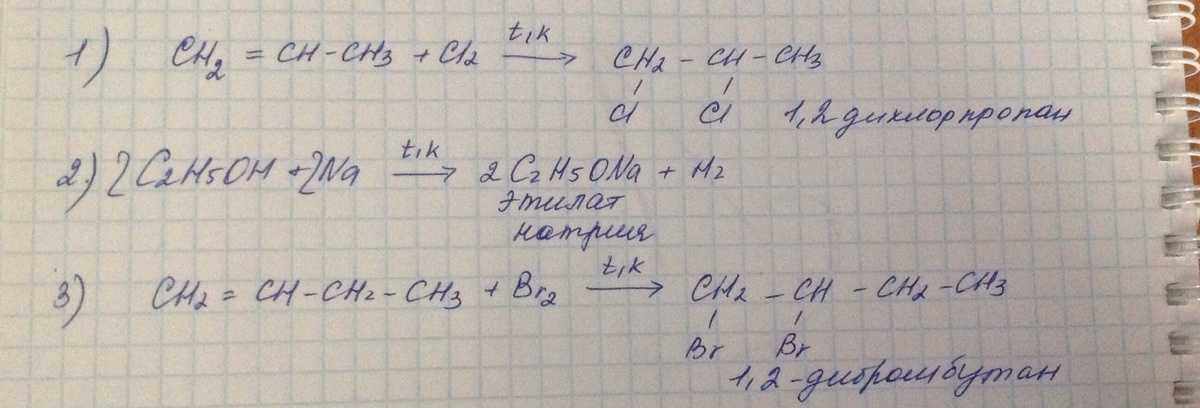 1) CH2 = CH-CH3 + Cl2 t,k → CH2 - CH - CH3
Cl Cl 1,2 дихлорпропан
2) 2C2H5OH + 2Na t,k → 2C2H5ONa + H2
этилат
натрия
3) CH2 = CH-CH2-CH3 + Br2 t,k → CH2 - CH - CH2 - CH3
Br Br
1,2-дибромбутан